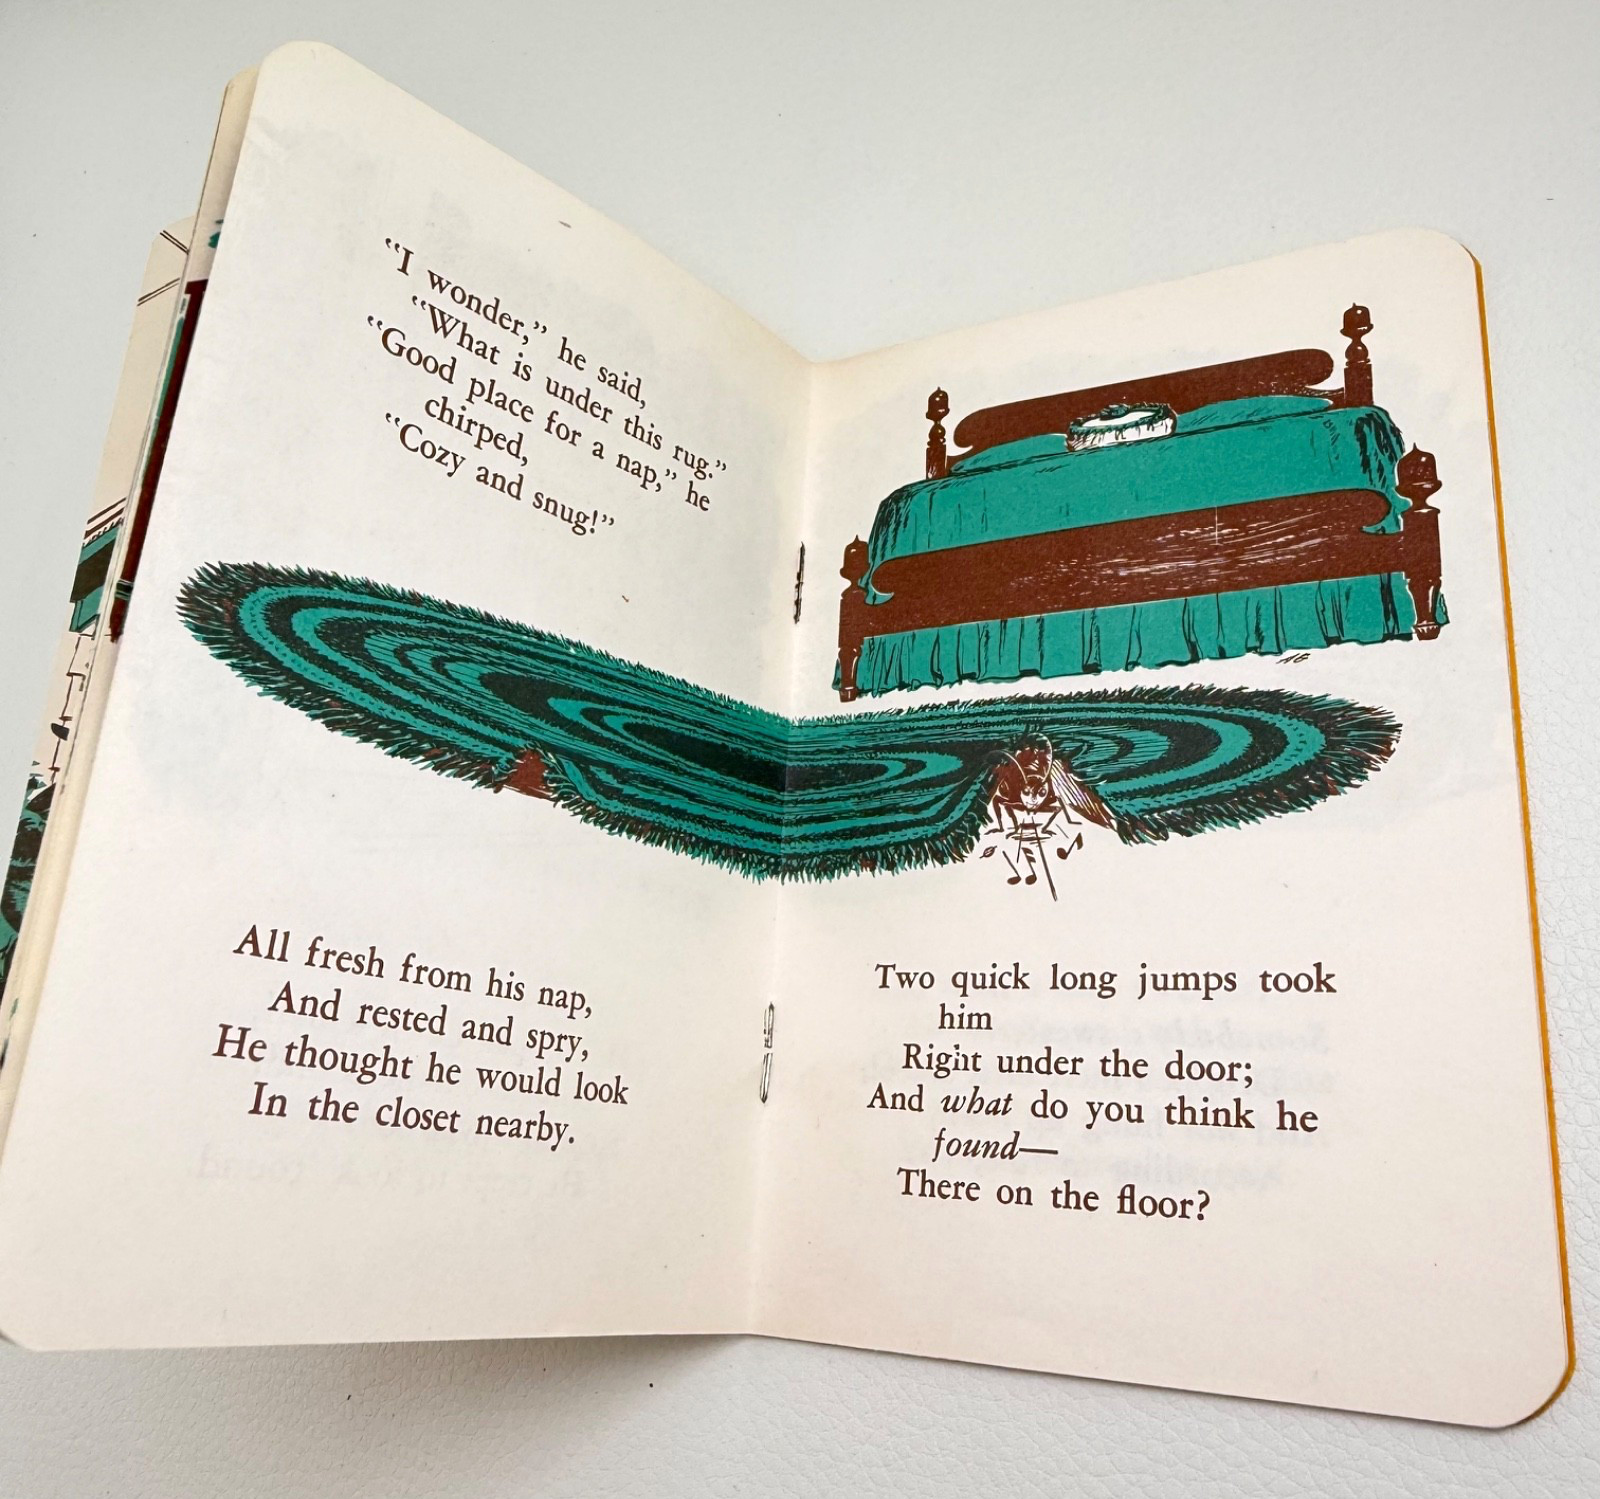 “I wonder,” he said,
“What is under this rug.”
“Good place for a nap,” he
chirped,
“Cozy and snug!”
All fresh from his nap,
And rested and spry,
He thought he would look
In the closet nearby.
AG
Two quick long jumps took
him
Right under the door;
And what do you think he
found—
There on the floor?